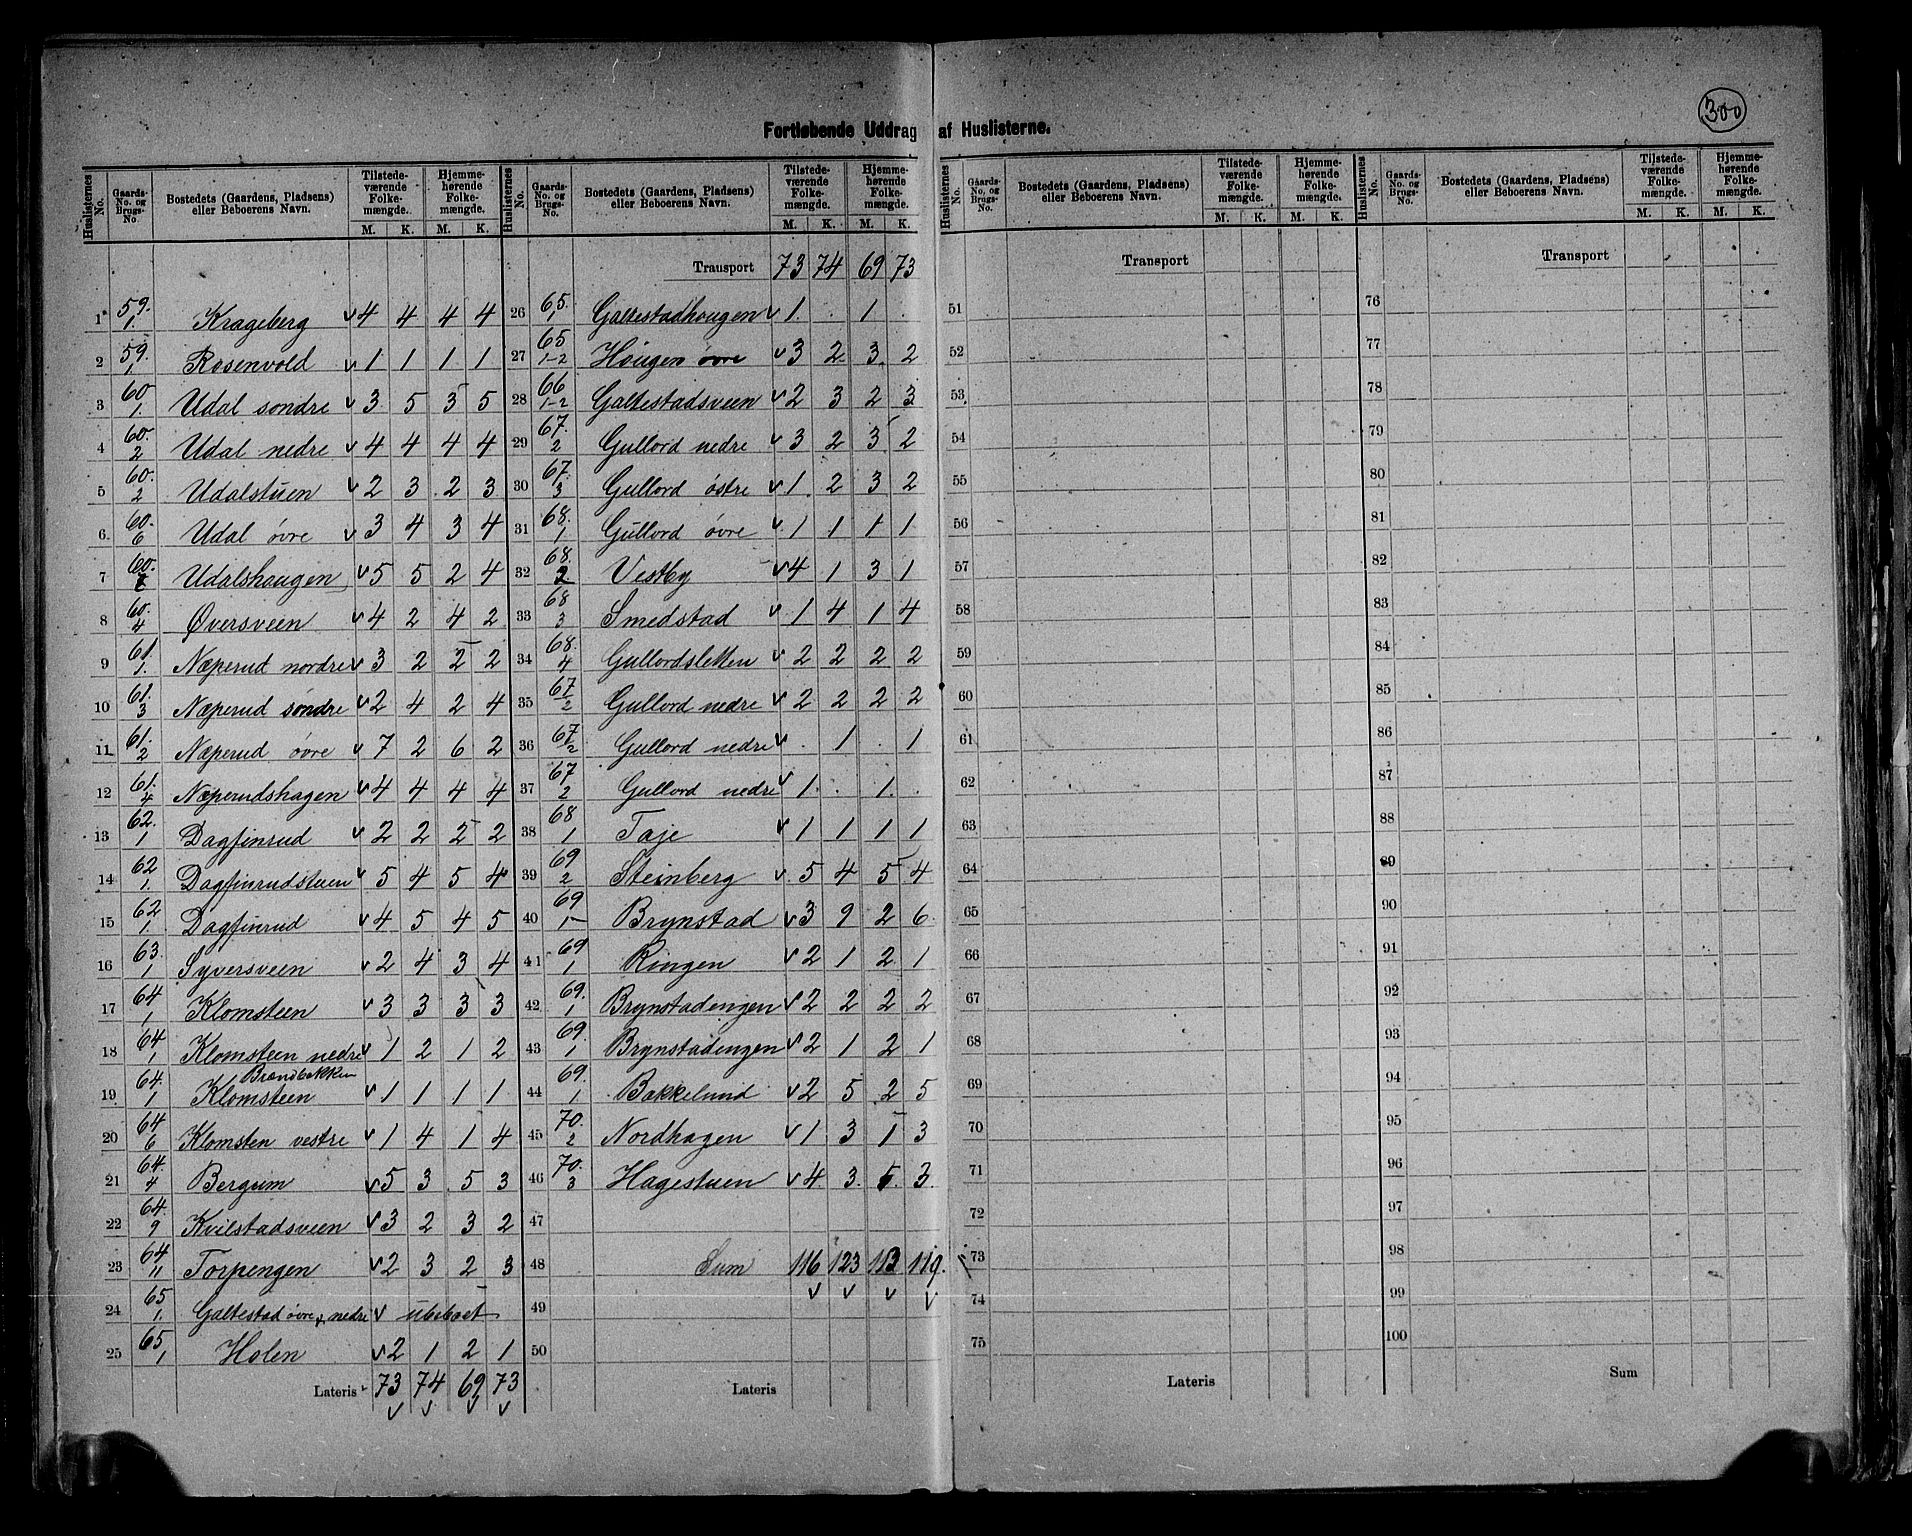 300
Fortløbende Uddrag af Huslisterne.
Huslisternes No. | Gaards-No. og Brugs-No. | Bostedets (Gaardens, Pladsens) eller Beboerens Navn. | Tilstedeværende Folkemængde. M. K. | Hjemmehørende Folkemængde. M. K.
1 | 59. 1. | Krageberg | v 4 | 4 | 4 | 4
2 | 59. 1 | Rosenvold | v 1 | 1 | 1 | 1
3 | 60. 1 | Udal søndre | v 3 | 5 | 3 | 5
4 | 60. 2 | Udal nedre | v 4 | 4 | 4 | 4
5 | 60. 2 | Udalstuen | v 2 | 3 | 2 | 3
6 | 60. 6 | Udal øvre | v 3 | 4 | 3 | 4
7 | 60. | Udalshaugen | v 5 | 5 | 2 | 4
8 | 60. 4 | Øversveen | v 4 | 2 | 4 | 2
9 | 61. 1. | Næperud nordre | v 3 | 2 | 2 | 2
10 | 61. 3 | Næperud søndre | v 2 | 4 | 2 | 4
11 | 61. 2 | Næperud øvre | v 7 | 2 | 6 | 2
12 | 61. 4 | Næperudshagen | v 4 | 4 | 4 | 4
13 | 62. 1 | Dagfinrud | v 2 | 2 | 2 | 2
14 | 62 1. | Dagfinrudstuen | v 5 | 4 | 5 | 4
15 | 62 1. | Dagfinrud | v 4 | 5 | 4 | 5
16 | 63. 1 | Syversveen | v 2 | 4 | 3 | 4
17 | 64 1 | Klomsteen | v 3 | 3 | 3 | 3
18 | 64 1 | Klomsteen nedre | v 1 | 2 | 1 | 2
19 | 64. 1 | Brændbakken Klomsteen | v 1 | 1 | 1 | 1
20 | 64 6 | Klomsten vestre | v 1 | 4 | 1 | 4
21 | 64. 4 | Bergum | v 5 | 3 | 5 | 3
22 | 64. 9 | Kvilstadsveen | v 3 | 2 | 3 | 2
23 | 64 11 | Torpengen | v 2 | 3 | 2 | 3
24 | 65 1. | Galtestad øvre & nedre | v ubeboet
25 | 65. 1 | Holen | v 2 | 1 | 2 | 1
Lateris | 73 | 74 | 69 | 73
v v v v
Huslisternes No. | Gaards-No. og Brugs-No. | Bostedets (Gaardens, Pladsens) eller Beboerens Navn. | Tilstedeværende Folkemængde. M. K. | Hjemmehørende Folkemængde. M. K.
Transport | 73 | 74 | 69 | 73
26 | 65. 1 | Galtestadhougen | v 1 | . | 1 | .
27 | 65 1-2 | Hougen øvre | v 3 | 2 | 3 | 2
28 | 66 1-2 | Galtestadsveen | v 2 | 3 | 2 | 3
29 | 67. 2 | Gullord nedre | v 3 | 2 | 3 | 2
30 | 67. 3 | Gullord østre | v 1 | 2 | 3 | 2
31 | 68. 1 | Gullord øvre | v 1 | 1 | 1 | 1
32 | 68. 2 | Vestby | v 4 | 1 | 3 | 1
33 | 68 3 | Smedstad | v 1 | 4 | 1 | 4
34 | 68. 4 | Gullordsletten | v 2 | 2 | 2 | 2
35 | 67 2 | Gullord nedre | v 2 | 2 | 2 | 2
36 | 67 2 | Gullord nedre | v . | 1 | . | 1
37 | 67 2 | Gullord nedre | v 1 | . | 1 | .
38 | 68 1 | Taje | v 1 | 1 | 1 | 1
39 | 69 2 | Steinberg | v 5 | 4 | 5 | 4
40 | 69 1 | Brynstad | v 3 | 9 | 2 | 6
41 | 69 1 | Ringen | v 2 | 1 | 2 | 1
42 | 69. 1 | Brynstadengen | v 2 | 2 | 2 | 2
43 | 69. 1 | Brynstadengen | v 2 | 1 | 2 | 1
44 | 69. 1 | Bakkelund | v 2 | 5 | 2 | 5
45 | 70. 2 | Nordhagen | v 1 | 3 | 1 | 3
46 | 70. 3 | Hagestuen | v 4 | 3 | 5 | 3
47
48 | Sum | 116 | 123 | 113 | 119.
49 | v v v v
50
Lateris
Huslisternes No. | Gaards-No. og Brugs-No. | Bostedets (Gaardens, Pladsens) eller Beboerens Navn. | Tilstedeværende Folkemængde. M. K. | Hjemmehørende Folkemængde. M. K.
Transport
51
52
53
54
55
56
57
58
59
60
61
62
63
64
65
66
67
68
69
70
71
72
73
74
75
Lateris
Huslisternes No. | Gaards-No. og Brugs-No. | Bostedets (Gaardens, Pladsens) eller Beboerens Navn. | Tilstedeværende Folkemængde. M. K. | Hjemmehørende Folkemængde. M. K.
Transport
76
77
78
79
80
81
82
83
84
85
86
87
88
89
90
91
92
93
94
95
96
97
98
99
100
Sum